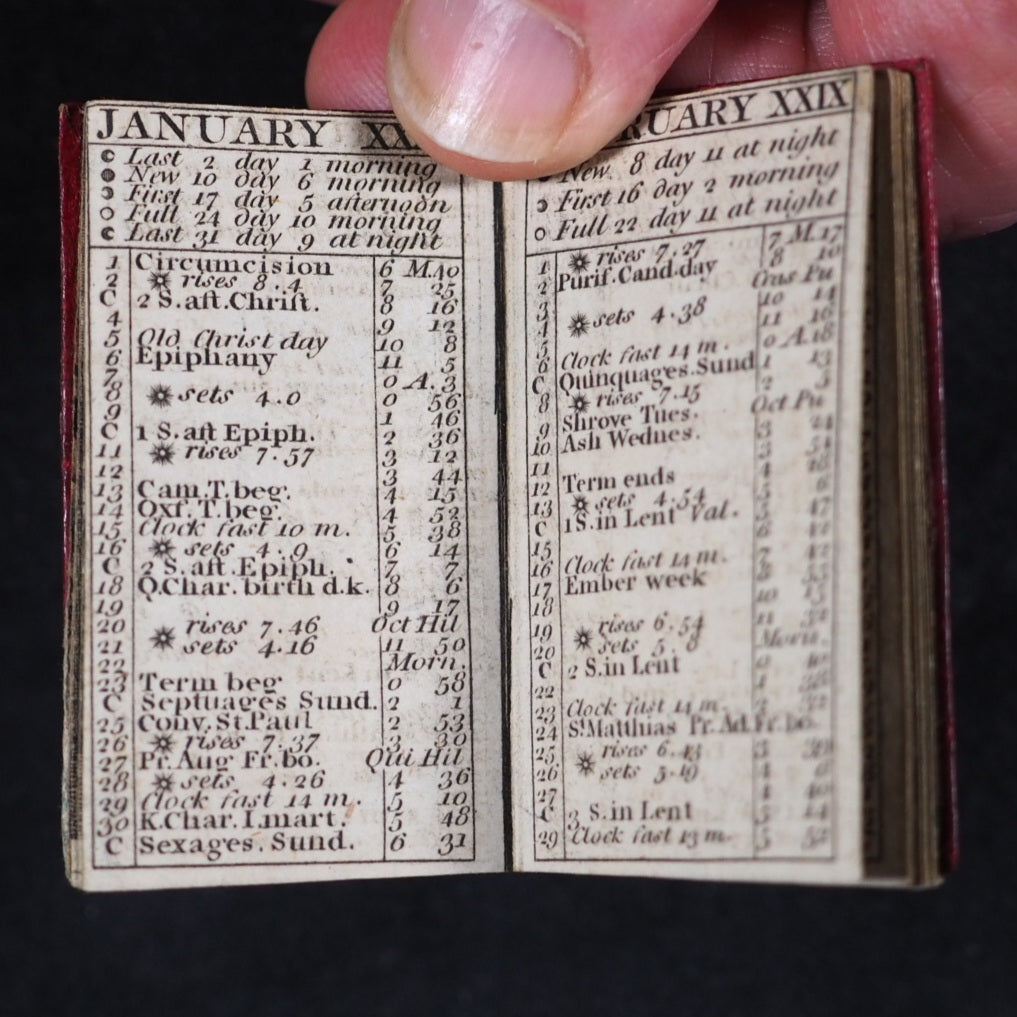 JANUARY XX
Last 2 day 1 morning
New 10 day 6 morning
First 17 day 5 afternoon
Full 24 day 10 morning
Last 31 day 9 at night
1 Circumcision 6 M.40
2 rises 8.4 7 25
C 2 S.aft.Christ. 8 16
4 9 12
5 Old Christ day 10 8
6 Epiphany 11 5
7 0 A. 3
8 sets 4.0 0 56
9 1 46
C 1 S.aft Epiph. 2 36
11 rises 7.57 3 12
12 3 44
13 Cam.T.beg. 4 15
14 Oxf.T.beg. 4 52
15 Clock fast 10 m. 5 38
16 sets 4.9 6 14
C 2 S.aft.Epiph. 7 7
18 Q.Char.birth d.k. 8 6
19 9 17
20 rises 7.46 Oct Hil
21 sets 4.16 11 50
22 Morn.
23 Term beg 0 58
C Septuages Sund. 2 1
25 Conv.St.Paul 2 53
26 rises 7.37 3 30
27 Pr.Aug Fr.bo. Qui Hil
28 sets 4.26 4 36
29 Clock fast 14 m. 5 10
30 K.Char.I.mart. 5 48
C Sexages.Sund. 6 31
RUARY XXIX
New 8 day 11 at night
First 16 day 2 morning
Full 22 day 11 at night
1 rises 7.27 7 M.17
2 Purif.Cand.day 8 10
Cras Pu
3 10 14
4 sets 4.38 11 16
5 0 A.18
6 Clock fast 14 m. 1 13
C Quinquages.Sund 2
8 rises 7.15 Oct Pu
9 Shrove Tues. 3
10 Ash Wednes. 3
11 4
12 Term ends 5
13 sets 4.54 5
C 1 S.in Lent Val. 6
15 7
16 Clock fast 14 m. 8
17 Ember week
18 10
19 rises 6.54 11
20 sets 5.8 Morn.
C 2 S.in Lent
22
23 Clock fast 14 m.
24 St Matthias Pr.Ad.Fr.bo.
25 rises 6.43 3
26 sets 5.19 4
27 4
C 3 S.in Lent 5
29 Clock fast 13 m. 5